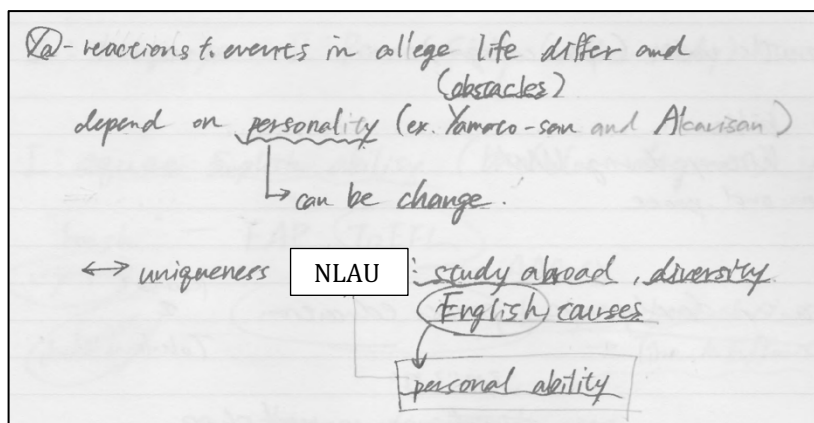 Ya - reactions to events in college life differ and
(obstacles)
depend on personality (ex. Yamato-san and Akarisan)
↳ can be change.
↔ uniqueness NLAU : study abroad, diversity.
English causes
personal ability